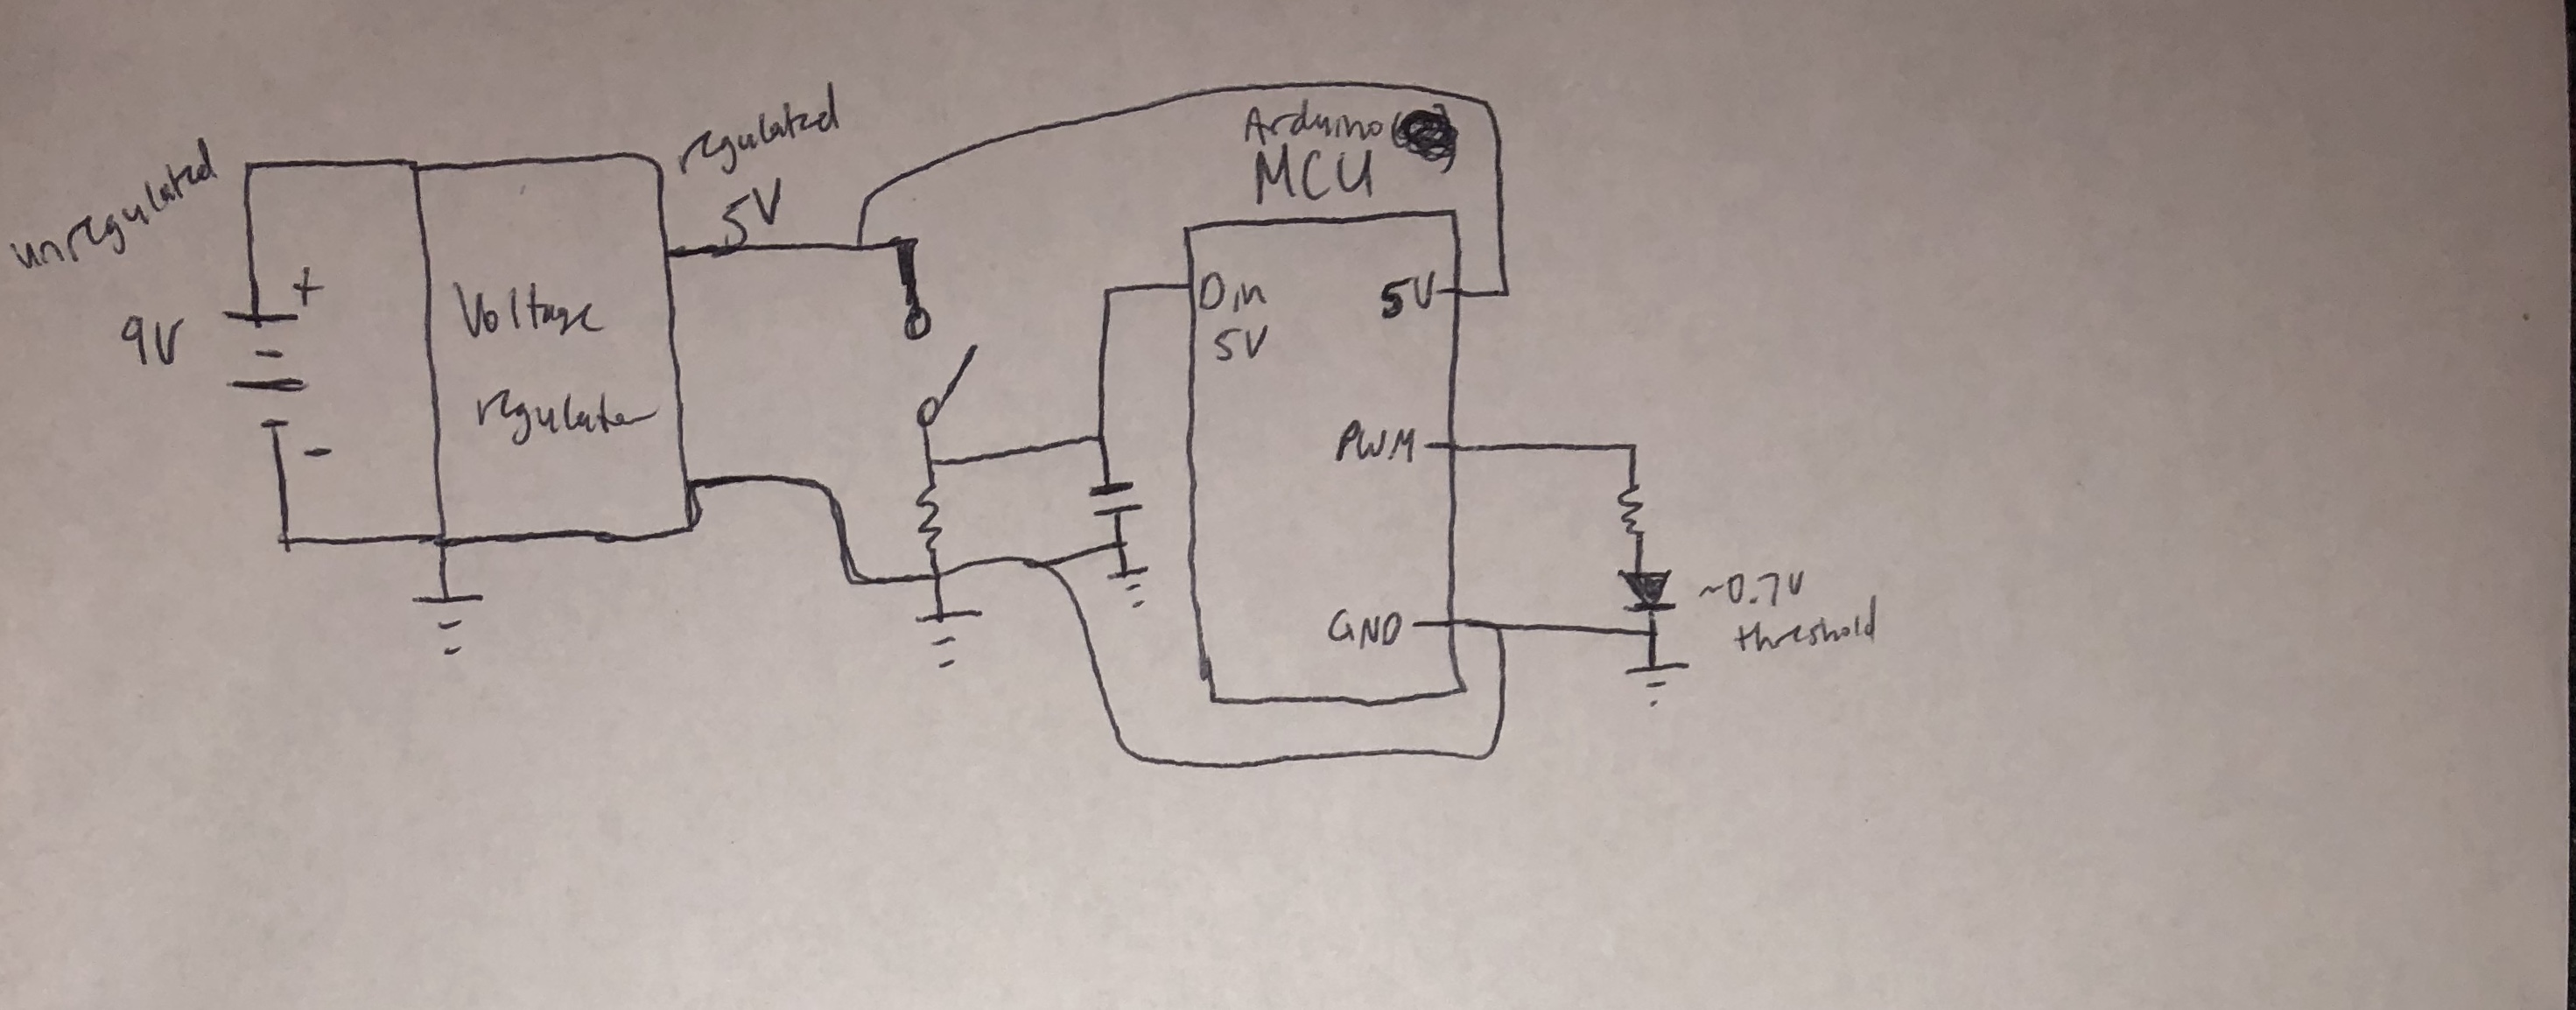 unregulated
+
9V
-
Voltage
regulator
regulated
5V
Arduino
MCU
Din
5V
5V
PWM
GND
~0.7V
threshold